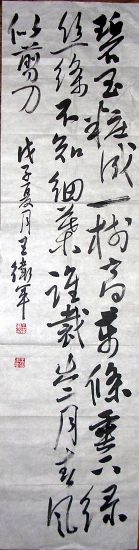 碧玉粧成一樹高萬條垂下綠
絲絛不知細葉誰裁出二月春風
似剪刀
戊子夏月王衛軍